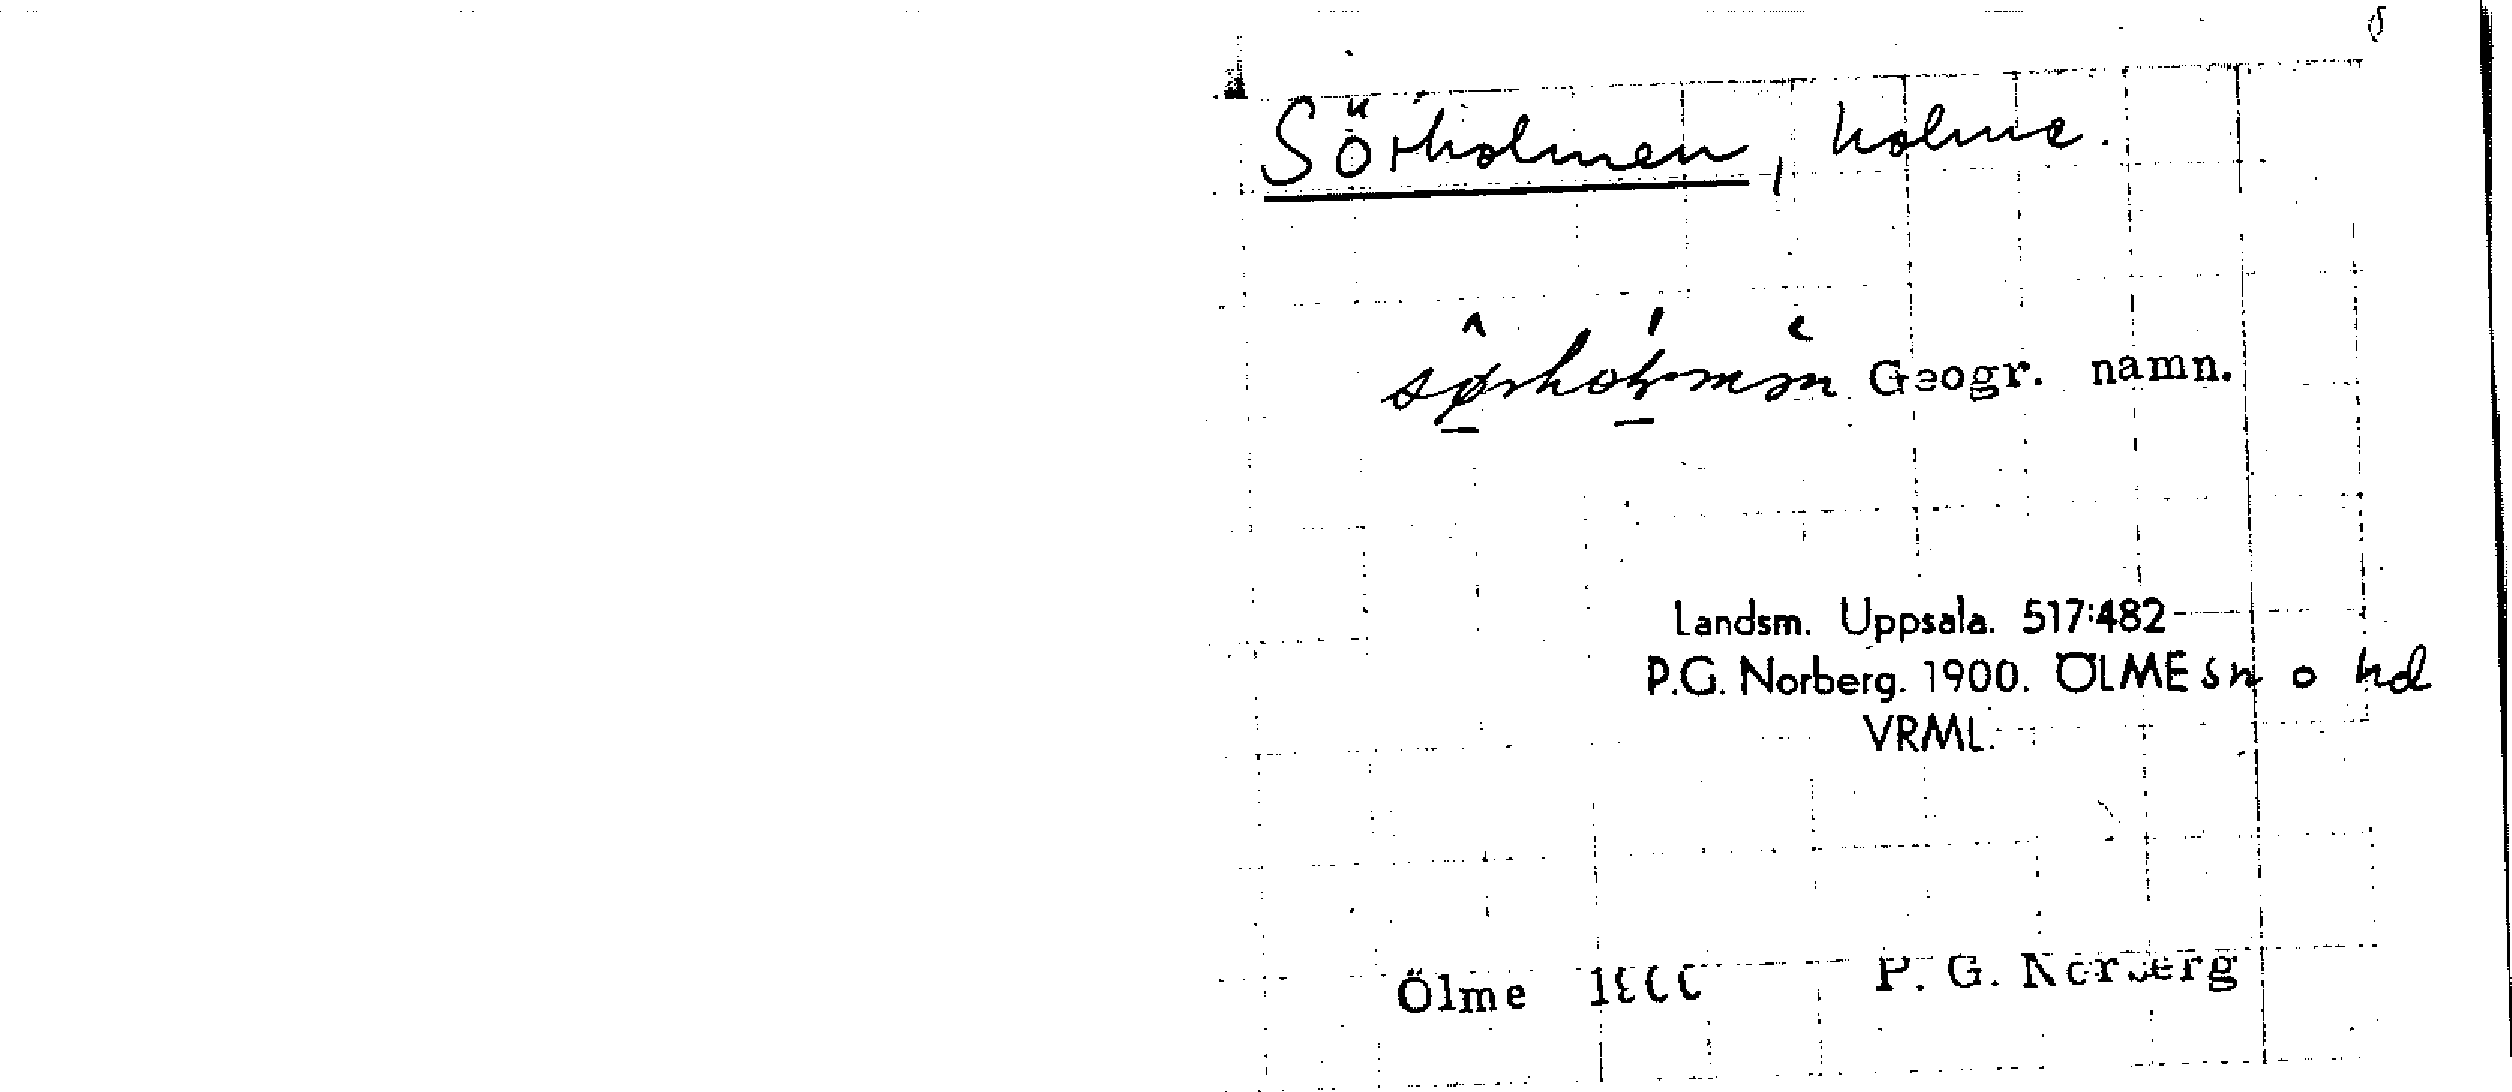 Sörholmen, holme.
Geogr. namn.
Landsm. Uppsala. 517:482
P.G. Norberg. 1900. ÖLME sn o hd
VRML.
Ölme 1900 P. G. Norberg